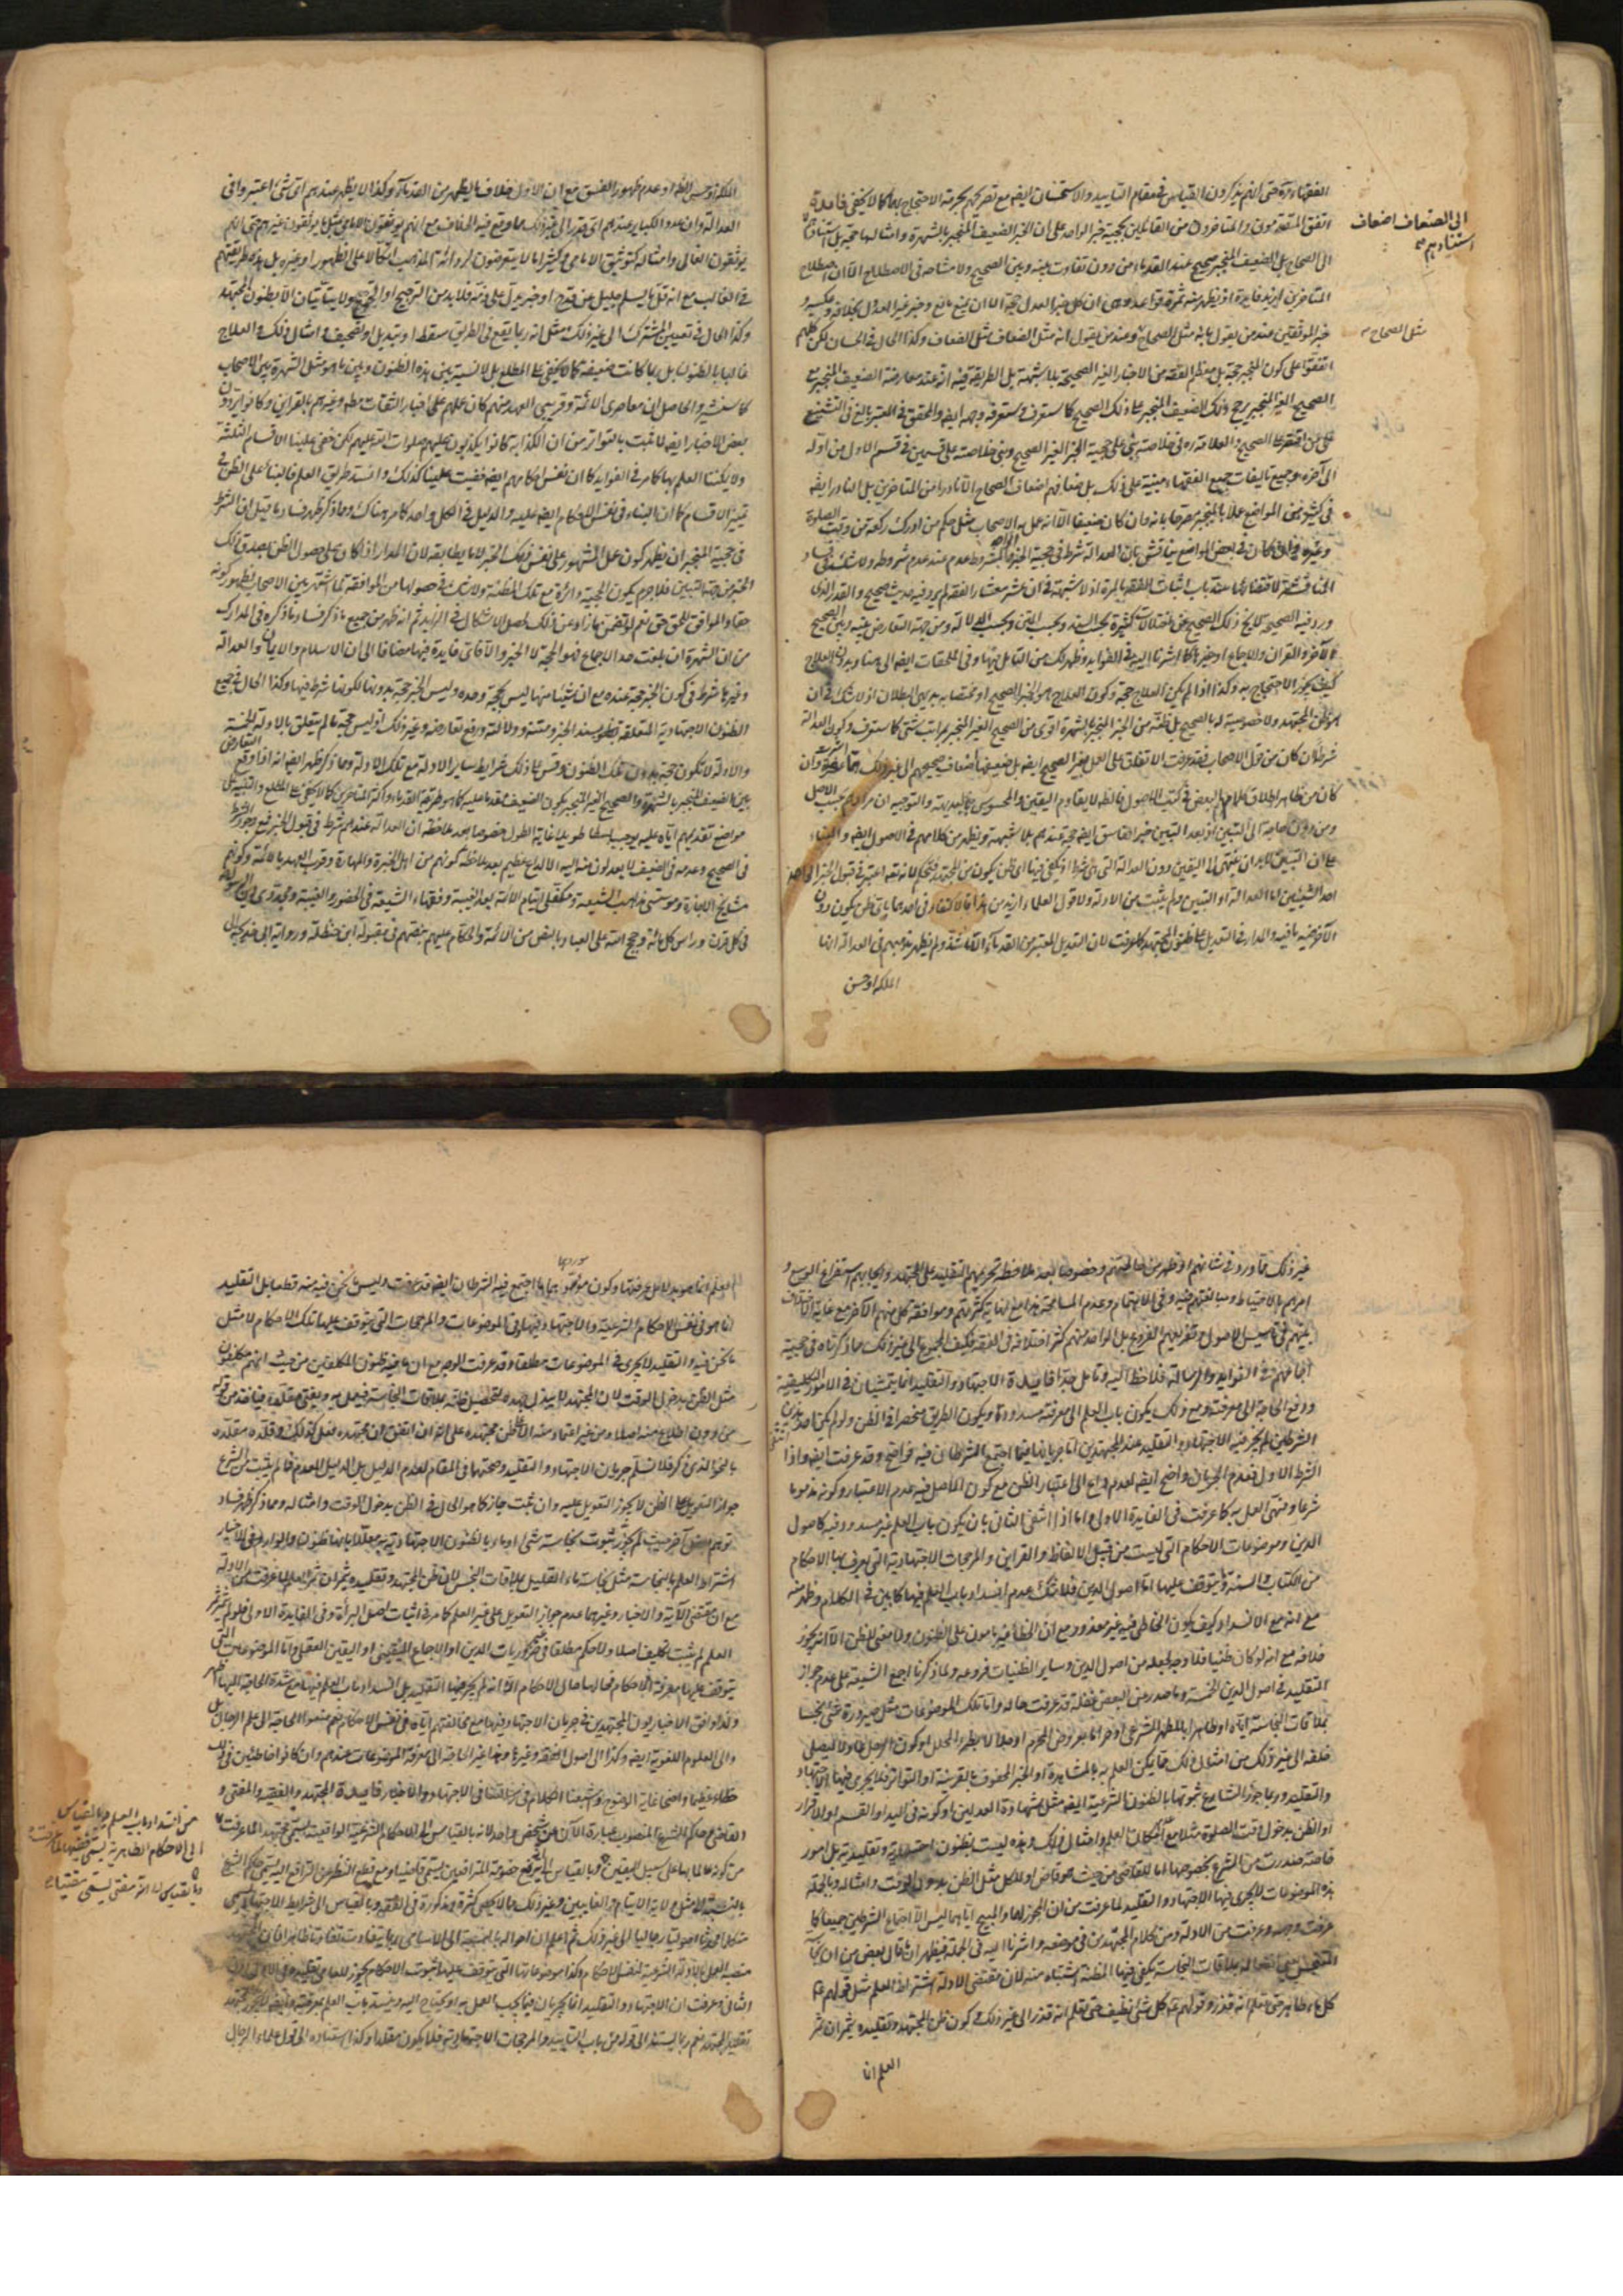 الفقهاء ره حتى انهم يذكرون القياس في مقام التاييد والاستحسان ايضا مع تصريحهم بحرمة الاحتجاج بهما كما لا يخفى فايدة
اتفق المتقدمون والمتاخرون من القائلين بحجية خبر الواحد على ان الخبر الضعيف المنجبر بالشهرة وامثالها حجة بل استنادهم
الى الضعاف اضعاف استنادهم
الى الصحاح بل الضعيف المنجبر صحيح عند القدماء من دون تفاوت بينه وبين الصحيح ولا مشاحة في الاصطلاح الا ان اصطلاح
المتاخرين ازيد فايدة اذ يظهر منه ثمرة قواعد وهي ان كل خبر العدل حجة الا ان يمنع مانع وخبر غير العدول بخلافه وعكسه و
خبر الموثقين عند من يقول بانه مثل الصحاح وعند من يقول انه مثل الضعاف مثل الضعاف وكذا الحال في الحسان لكن كلهم
مثل الصحاح
اتفقوا على كون المنجبر حجة بل معظم الفقه من الاخبار الغير الصحيحة بلا شبهة بل الطريقة فيه انه عند معارضة الضعيف المنجبر مع
الصحيح الغير المنجبر يرجح ذلك الضعيف المنجبر على ذلك الصحيح كما ستعرف وستعرف وجهه ايضا والمحقق في المعتبر بالغ في التشنيع
على من اقتصر على الصحيح والعلامة ره في خلاصته بنى على حجية الخبر الغير الصحيح وبنى خلاصته على قسمين في قسم الاول من اوله
الى آخره وجميع تاليفات جميع الفقهاء مبنية على ذلك بل ضعافهم اضعاف الصحاح الا نادرا من المتاخرين بل النادر ايضا
في كثير من المواضع عملا بالمنجبر مصرحا بانه وان كان ضعيفا الا انه عمل به الاصحاب مثل حكم من ادرك ركعة من وقت الصلوة
وغيره وان كان في بعض المواضع يناقش بان العدالة شرط في حجية الخبر الواحد والمشروط عدم عند عدم شرطه ولا شك في فساد
المناقشة لاقتضائها سد باب اثبات الفقه بالمرة اذ لا شبهة في ان عشر معشار الفقه لم يرد فيه حديث صحيح والقدر الذي
ورد فيه الصحيح لا يخلو ذلك الصحيح من اختلالات كثيرة بحسب السند وبحسب المتن وبحسب الدلالة ومن جهة التعارض بينه وبين الصحيح
الآخر او القرآن والاجماع او غيرها كما اشرنا اليه في الفوايد وظهر لك من التامل فيها وفي الملحقات ايضا الى هنا وبدون العلاج
كيف يجوز الاحتجاج به وكذا اذا لم يكن العلاج حجة وكون العلاج هو الخبر الصحيح او مختصا به بديهي البطلان اذ لا شك في ان
هو ظن المجتهد ولا خصوصية له بالصحيح بل ظنه من الخبر المنجبر بالشهرة اقوى من الصحيح الغير المنجبر بمراتب شتى كما ستعرف وكون العدالة
شرطا ان كان من قول الاصحاب فقد عرفت الاتفاق على العمل بغير الصحيح ايضا بل ضعيفهم اضعاف صحيحهم الى غير ذلك مما عرفت وان
كان من ظاهر اطلاق كلام البعض في كتب الاصول فالظاهر لا يقاوم اليقين والمحسوس بالبديهة والتوجيه ان مرادهم بحسب الاصل
ومن دون حاجة الى التبين اذ بعد التبين خبر الفاسق ايضا حجة عندهم بلا شبهة ويظهر من كلامهم في الاصول ايضا والبناء
على ان التبين لا بد ان ينتهي الى اليقين دون العدالة التي هي شرط اذ يكفي فيها اي ظن يكون من المجتهد تحكم لانه تعالى اعتبر في قبول الخبر الواحد
احد الشيئين اما العدالة او التبين ولم يثبت من الادلة ولا قول العلماء ازيد من هذا فالاكتفاء في احدهما باي ظن يكون دون
الآخر فيه ما فيه والمدار في التعديل على ظنون المجتهد كما عرفت لان التعديل المعتبر من القدماء القاشية ولم يظهر مذهبهم في العدالة انها
الملكة او حسن
الملكة او حسن الظاهر او عدم ظهور الفسق مع ان الاول خلاف ما يظهر من القدماء وكذا لا يظهر عندهم اي شيء اعتبروا في
العدالة وان عدد الكباير عندهم اي قدر الى غير ذلك مما وقع فيه الخلاف مع انهم يوثقون الامامي مثل ما يوثقون غيرهم حتى انهم
يوثقون الغالي وامثاله كتوثيق الامامي وكثيرا ما لا يتعرضون لرداءة المذهب اتكالا على الظهور او غيره بل هذه طريقتهم
في الغالب مع انه قل ما يسلم جليل عن قدح او خبر يدل على ذمه فلا بد من الترجيح او الجمع ولا يتاتيان الا بظنون المجتهد
وكذا الحال في تعيين المشترك الى غير ذلك مثل انه ربما يقع في الطريق سقط او تبديل او تصحيف وامثال ذلك والعلاج
غالبا بالظنون بل ربما كانت ضعيفة كما لا يخفى على المطلع بل لا نسبة بين هذه الظنون وبين ما هو مثل الشهرة بين الاصحاب
كما سنشير والحاصل ان معاصري الائمة وقريبي العهد منهم كان عملهم على اخبار الثقات مطلقا وغيرهم بالقراين وكانوا يردون
بعض الاخبار ايضا لما ثبت بالتواتر من ان الكذابة كانوا يكذبون عليهم صلوات الله عليهم لكن خفي علينا الاقسام الثلثة
ولا يمكننا العلم بها كما مر في الفوايد كما ان نفس احكامهم ايضا خفيت علينا كذلك وانسد طريق العلم فالبناء على الظن في
تمييز الاقسام كما ان البناء في نفس الاحكام ايضا عليه والدليل في الكل واحد كما مر هناك ومما ذكر ظهر فساد ما قيل ان الشرط
في حجية المنجبر ان يظهر كون عمل المشهور على نفس ذلك الخبر لا ما يطابقه لان المدار اذا كان على حصول الظن بصدق ذلك
الخبر من جهة التبين فلا جرم يكون الحجية دائرة مع تلك المظنة ولا شك في حصولها من الموافقة لما اشتهر بين الاصحاب لظهور كونه
حقا والموافق للحق حق نعم لو تضمن ما زاد عن ذلك يحصل الاشكال في الزايد ثم انه ظهر من جميع ما ذكر فساد ما ذكره في المدارك
من ان الشهرة ان بلغت حد الاجماع فهو الحجة لا الخبر والا فاي فايدة فيها مضافا الى ان الاسلام والايمان والعدالة
وغيرها شرط في كون الخبر حجة عنده مع ان شيئا منها ليس بحجة وحده وليس الخبر حجة بدونها لكونها شرط فيها وكذا الحال في جميع
الظنون الاجتهادية المتعلقة بسند الخبر ومتنه ودلالته ورفع تعارضه وغير ذلك اذ ليس حجة ما لم يتعلق بالادلة الخمسة
والادلة لا تكون حجة بدون تلك الظنون وقس على ذلك شرايط ساير الادلة مع تلك الادلة ومما ذكر ظهر ايضا انه اذا وقع التعارض
بين الضعيف المنجبر بالشهرة والصحيح الغير المنجبر يكون الضعيف مقدما عليه كما هو طريقة القدماء واكثر المتاخرين كما لا يخفى على المطلع والتنبيه على
مواضع تقديمهم اياه عليه يوجب بسطا طويلا غاية الطول خصوصا بعد ملاحظة ان العدالة عندهم شرط في قبول الخبر مع وجود الشرط
في الصحيح وعدمه في الضعيف لا يعدلون منه اليه الا لداع عظيم بعد ملاحظة كونهم من اهل الخبرة والمهارة وقرب العهد بالائمة وكونهم
مشايخ الاجازة ومؤسسي مذاهب الشيعة ومتكفلي ايتام الائمة بعد الغيبة وفقهاء الشيعة في الحضور والغيبة ومجددي دين الرسول
في كل قرن وراس كل مائة وحجج الله على العباد بالنص من الائمة والحكام عليهم بنصهم في مقبولة ابن حنظلة ورواية ابي خديجة الى
غير ذلك مما ورد في شانهم او ظهر من حالهم وخصوصا بعد ملاحظة تحريمهم التقليد على المجتهد وايجابهم استفراغ الوسع و
امرهم بالاحتياط ومبالغتهم فيه وفي الاهتمام وعدم المسامحة هذا مع نهاية كثرتهم وموافقة كل منهم الآخر مع غاية الاختلاف
بينهم في تاسيس الاصول وتفريعهم الفروع بل الواحد منهم كثر اختلافه في الفقه فكيف الجميع الى غير ذلك مما ذكرناه في حجية
اجماعهم في الفوايد والرسالة فلاحظ اليه وتامل جدا فايدة الاجتهاد والتقليد انما يتمشيان في الامور التكليفية
ودفع الحاجة الى معرفته ومع ذلك يكون باب العلم الى معرفته مسدودا ويكون الطريق منحصرا في الظن ولو لم يكن احد هذين
الشرطين لم يجر فيه الاجتهاد والتقليد عند المجتهدين اما جريانهما فيما اجتمع الشرطان فيه فواضح وقد عرفت ايضا واذا انتفى
الشرط الاول فعدم الجريان واضح ايضا لعدم داع الى اعتبار الظن مع كون الاصل فيه عدم الاعتبار وكونه مذموما
شرعا ومنهى العمل به كما عرفت في الفايدة الاولى واما اذا انتفى الثاني بان يكون باب العلم غير مسدود فيه كاصول
الدين وموضوعات الاحكام التي ليست من قبيل الالفاظ والقراين والمرجحات الاجتهادية التي يعرف بها الاحكام
من الكتاب والسنة ويتوقف عليها اما اصول الدين فلا شك في عدم انسداد باب العلم فيها كما بين في الكلام وظهر منه
مع انه مع الانسداد كيف يكون الخاطي فيه غير معذور مع ان الخطاء غير مامون على الظنون ولا معنى للظن الا انه يجوز
خلافه مع انه لو كان ظنيا فلا وجه لجعله من اصول الدين وساير الظنيات فروعه ولما ذكرنا اجمع الشيعة على عدم جواز
التقليد في اصول الدين الخمسة وما صدر عن البعض فغفلة قد عرفت حاله واما تلك الموضوعات مثل صيرورة شيء نجسا
بملاقات النجاسة اياه او طاهرا بالمطهر الشرعي او حراما بعروض المحرم او حلالا بطرو المحلل او كون الرجل عادلا فيصلى
خلفه الى غير ذلك من امثال ذلك مما يمكن العلم به بالمشاهدة او الخبر المحفوف بالقرينة او التواتر فلا يجري فيها الاجتهاد
والتقليد وربما جوز الشارع ثبوتها بالظنون الشرعية ايضا مثل شهادة العدلين او كونه في اليد او القسم او الاقرار
او الظن بدخول وقت الصلوة مثلا مع امكان العلم وامثال ذلك وهذه ليست بظنون اجتهادية وتقليدية بل امور
خاصة صدرت من الشرع بخصوصها اما للقاضي من حيث هو قاض او للكل مثل الظن بدخول الوقت وامثاله وبالجملة
هذه الموضوعات لا يجري فيها الاجتهاد والتقليد لما عرفت من ان المجوز لهما والمبيح اياهما ليس الا اجتماع الشرطين جميعا كما
عرفت وجهه وعرفت من الادلة ومن كلام المجتهدين في موضعه واشرنا اليه في الجملة فيظهر ان ما قال بعض من ان نجاسة
القليل بملاقات النجاسة يكفي فيها المظنة اشتباه منه لان مقتضى الادلة اشتراط العلم مثل قولهم ع
كل ماء طاهر حتى تعلم انه قذر وقولهم ع كل شيء نظيف حتى تعلم انه قذر الى غير ذلك وكون ظن المجتهد وتقليده يثمران ثمر
العلم انما
العلم انما هو بدليل عرفتها وكون موردهما ما اجتمع فيه الشرطان ايضا قد عرفت وليس ما نحن فيه منه قطعا بل التقليد
انما هو في نفس الاحكام الشرعية والاجتهاد فيها وفي الموضوعات والمرجحات التي يتوقف عليها تلك الاحكام لا مثل
ما نحن فيه والتقليد لا يجري في الموضوعات مطلقا وقد عرفت الوجه مع ان ما فيه ظنون المكلفين من حيث انهم مكلفون
مثل الظن بدخول الوقت لان المجتهد لا يبذل جهده لتحصيل ظنه بملاقات النجاسة فيعمل به ويفتي مقلده فياخذ من قوله
من دون اطلاع منه اصلا ومن غير اعتماد منه الا على ظن مجتهده على انه ان اتفق ان مجتهده فعل كذلك وقلده مقلده
بالنحو الذي ذكر فلا نسلم جريان الاجتهاد والتقليد وصحتها في المقام لعدم الدليل بل الدليل للعدم فما لم يثبت من الشرع
جواز التعويل على الظن لا يجوز التعويل عليه وان ثبت جاز كما هو الحال في الظن بدخول الوقت وامثاله ومما ذكر ظهر فساد
توهم بعض آخر حيث لم يجوز ثبوت نجاسة شيء او ماء بالظنون الاجتهادية معللا بانها ظنون والوارد في الاخبار
اشتراط العلم بالنجاسة مثل نجاسة ماء القليل بملاقات النجس لان ظن المجتهد وتقليده يثمران ثمر العلم لما عرفت من الادلة
مع ان مقتضى الآية والاخبار وغيرهما عدم جواز التعويل على غير العلم كما مر في اثبات اصل البراءة وفي الفايدة الاولى فلو لم يثمر ثمر
العلم لم يثبت تكليف اصلا ولا حكم مطلقا في غير ضروريات الدين او الاجماع اليقيني او اليقين العقلي واما الموضوعات التي
يتوقف عليها معرفة الاحكام فحالها حال الاحكام الا انه لم يجر فيها التقليد بل انسداد باب العلم فيها مع شدة الحاجة اليها ظهر
ولذا وافق الاخباريون المجتهدين في جريان الاجتهاد فيها مع مخالفتهم اياهم في نفس الاحكام نعم منعوا الحاجة الى علم الرجال بل
والى العلوم اللغوية ايضا وكذا الى اصول الفقه وغيرها مما غير الحاجة الى معرفة الموضوعات عندهم وان كانوا خاطئين في ذلك
خطاء عظيما واضحا غاية الوضوح واشبعنا الكلام في رسالتنا في الاجتهاد والاخبار فايدة المجتهد والفقيه والمفتي و
القاضي وحاكم الشرع المنصوب عبارة الآن عن شخص واحد لانه بالقياس الى الاحكام الشرعية الواقعية يسمى مجتهدا لما عرفت
من انسداد باب العلم وبالقياس
الى الاحكام الظاهرية يسمى فقيها لما عرفت
من كونه عالما بها على سبيل اليقين وبالقياس الى انه يفتي يسمى مفتيا وبالقياس الى انه يرفع خصومة المترافعين يسمى قاضيا ومع قطع النظر عن الترافع اليه يسمى حاكم الشرع
بالنسبة الى مثل ولاية الايتام والغايبين وغير ذلك مما لا يحصى كثرة ومذكورة في الفقه وبالقياس الى شرايط الاجتهاد يسمى
متكلما محدثا اصوليا رجاليا الى غير ذلك ثم اعلم ان احواله بالنسبة الى الاسامي ربما يتفاوت تفاوتا ظاهرا فان المجتهد
منصبه العمل بالادلة الشرعية لنفس الاحكام وكذا موضوعاتها التي يتوقف عليها ثبوت الاحكام ويجوز للعامي تقليده في الاول دون
الثاني وعرفت ان الاجتهاد والتقليد انما يجريان فيما يجب العمل به او يحتاج اليه وينسد باب العلم بمعرفته وايضا لا يجوز للمجتهد
تقليد المجتهد نعم ربما يستند الى قوله من باب التاييد والمرجحات الاجتهادية فلا يكون مقلدا وكذا استناده الى قول علماء الرجال